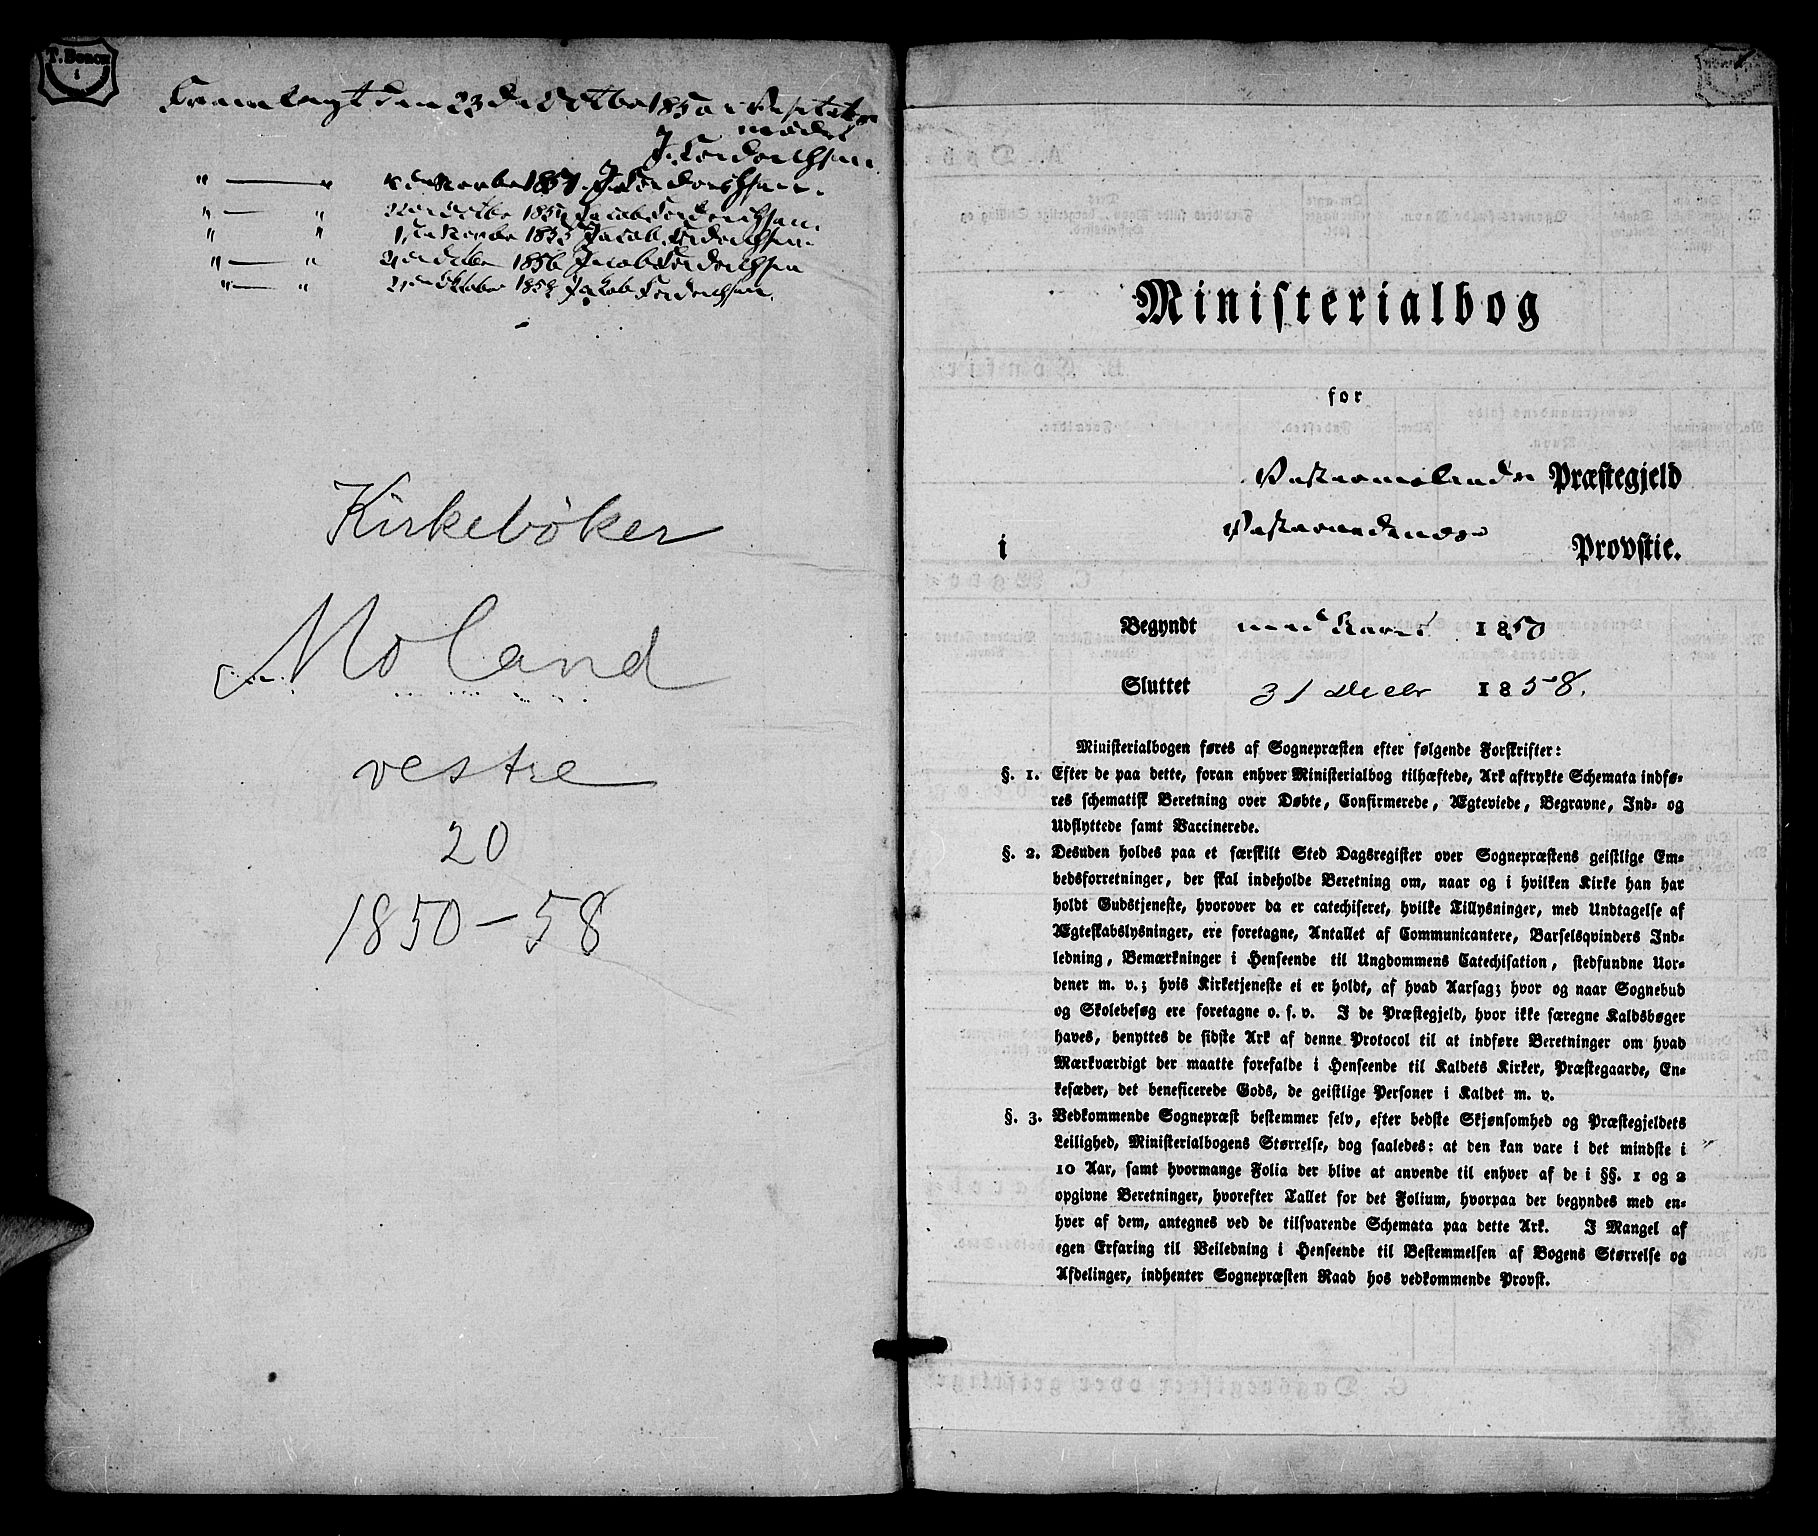 T. Benon
Fremlagt den 23de Octbr 1850 i Visitats
mødet
J. Frederichsen.
" — " 1851 J. Frederichsen.
" — " 22 Octbr 185 Jacob Frederichsen.
" " 1855 Jacob Frederichsen.
" — " 2 Octbr 1856 Jacob Frederichsen
" — " 2 Oktober 185 Jakob Frederichsen.
Kirkebøker
Moland
vestre
20
1850-58
Ministerialbog
for
Præstegjeld
i Provstie.
Begyndt 1850
Sluttet 31 Decbr 1858.
Ministerialbogen føres af Sognepræsten efter følgende Forskrifter:
§. 1. Efter de paa dette, foran enhver Ministerialbog tilhæftede, Ark aftrykte Schemata indfø-
res schematisk Beretning over Døbte, Confirmerede, Ægteviede, Begravne, Ind- og
Udflyttede samt Vaccinerede.
§. 2. Desuden holdes paa et færskilt Sted Dagsregister over Sognepræstens geistlige Em-
bedsforretninger, der skal indeholde Beretning om, naar og i hvilken Kirke han har
holdt Gudstjeneste, hvorover da er catechiseret, hvilke Tillysninger, med Undtagelse af
Ægteskabslysninger, ere foretagne, Antallet af Communicantere, Barselqvinders Ind-
ledning, Bemærkninger i Henseende til Ungdommens Catechisation, stedfundne Uor-
dener m. v.; hvis Kirketjeneste ei er holdt, af hvad Aarsag; hvor og naar Sognebud
og Skolebesøg ere foretagne o. s. v. I de Præstegjeld, hvor ikke særegne Kaldsbøger
haves, benyttes de sidste Ark af denne Protocol til at indføre Beretninger om hvad
Mærkværdigt der maatte forefalde i Henseende til Kaldets Kirker, Præstegaarde, En-
kesæder, det beneficerede Gods, de geistlige Personer i Kaldet m. v.
§. 3. Vedkommende Sognepræst bestemmer selv, efter bedste Skjønsomhed og Præstegjeldets
Leilighed, Ministerialbogens Størrelse, dog saaledes: at den kan vare i det mindste i
10 Aar, samt hvormange Folia der blive at anvende til enhver af de i §§. 1 og 2
opgivne Beretninger, hvorefter Tallet for det Folium, hvorpaa der begyndes med en-
hver af dem, antegnes ved de tilsvarende Schemata paa dette Ark. I Mangel af
egen Erfaring til Veiledning i Henseende til Bestemmelsen af Bogens Størrelse og
Afdelinger, indhenter Sognepræsten Raad hos vedkommende Provst.